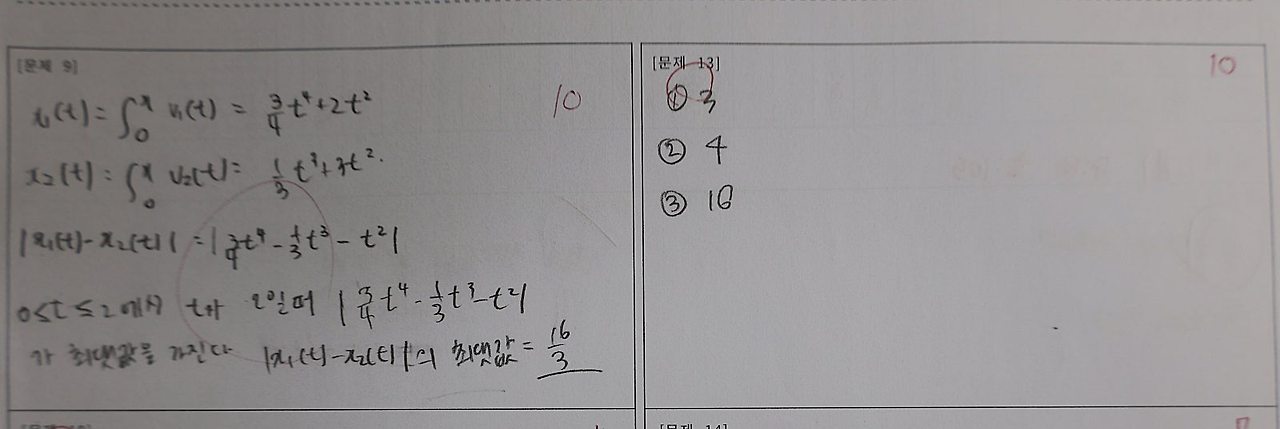 [문제 9]
10
x₁(t) = ∫₀ˣ v₁(t) = 3/4 t⁴ + 2t²
x₂(t) = ∫₀ˣ v₂(t) = 1/3 t³ + 3t².
|x₁(t) - x₂(t)| = |3/4 t⁴ - 1/3 t³ - t²|
0≤t≤2에서 t가 2일때 |3/4 t⁴ - 1/3 t³ - t²|
가 최댓값을 가진다 |x₁(t) - x₂(t)|의 최댓값 = 16/3
[문제 13]
10
① 3
② 4
③ 16
[문제 14]